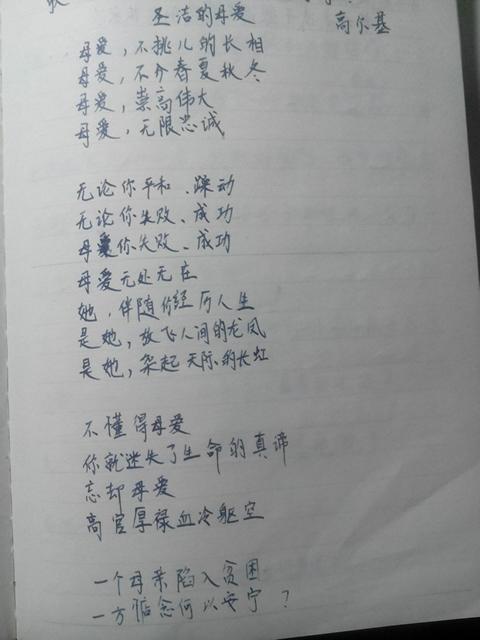 圣洁的母爱
高尔基
母爱,不挑儿的长相
母爱,不分春夏秋冬
母爱,崇高伟大
母爱,无限忠诚
无论你平和、躁动
无论你失败、成功
母爱你失败、成功
母爱无处无在
她,伴随你经历人生
是她,放飞人间的龙凤
是她,架起天际的长虹
不懂得母爱
你就迷失了生命的真谛
忘却母爱
高官厚禄血冷躯空
一个母亲陷入贫困
一方惦念何以安宁?